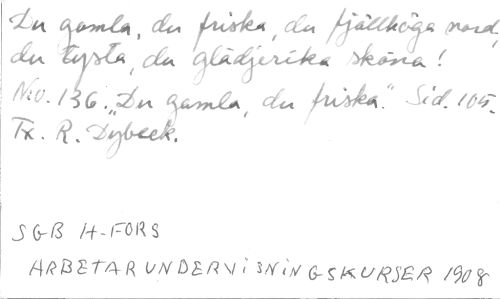 Du gamla, du friska, du fjällhöga nord,
du tysta, du glädjerika sköna!
N:o. 136. "Du gamla, du friska." Sid. 105.
Tx. R. Dybeck.
SGB H-FORS
ARBETARUNDERVISNINGSKURSER 1908